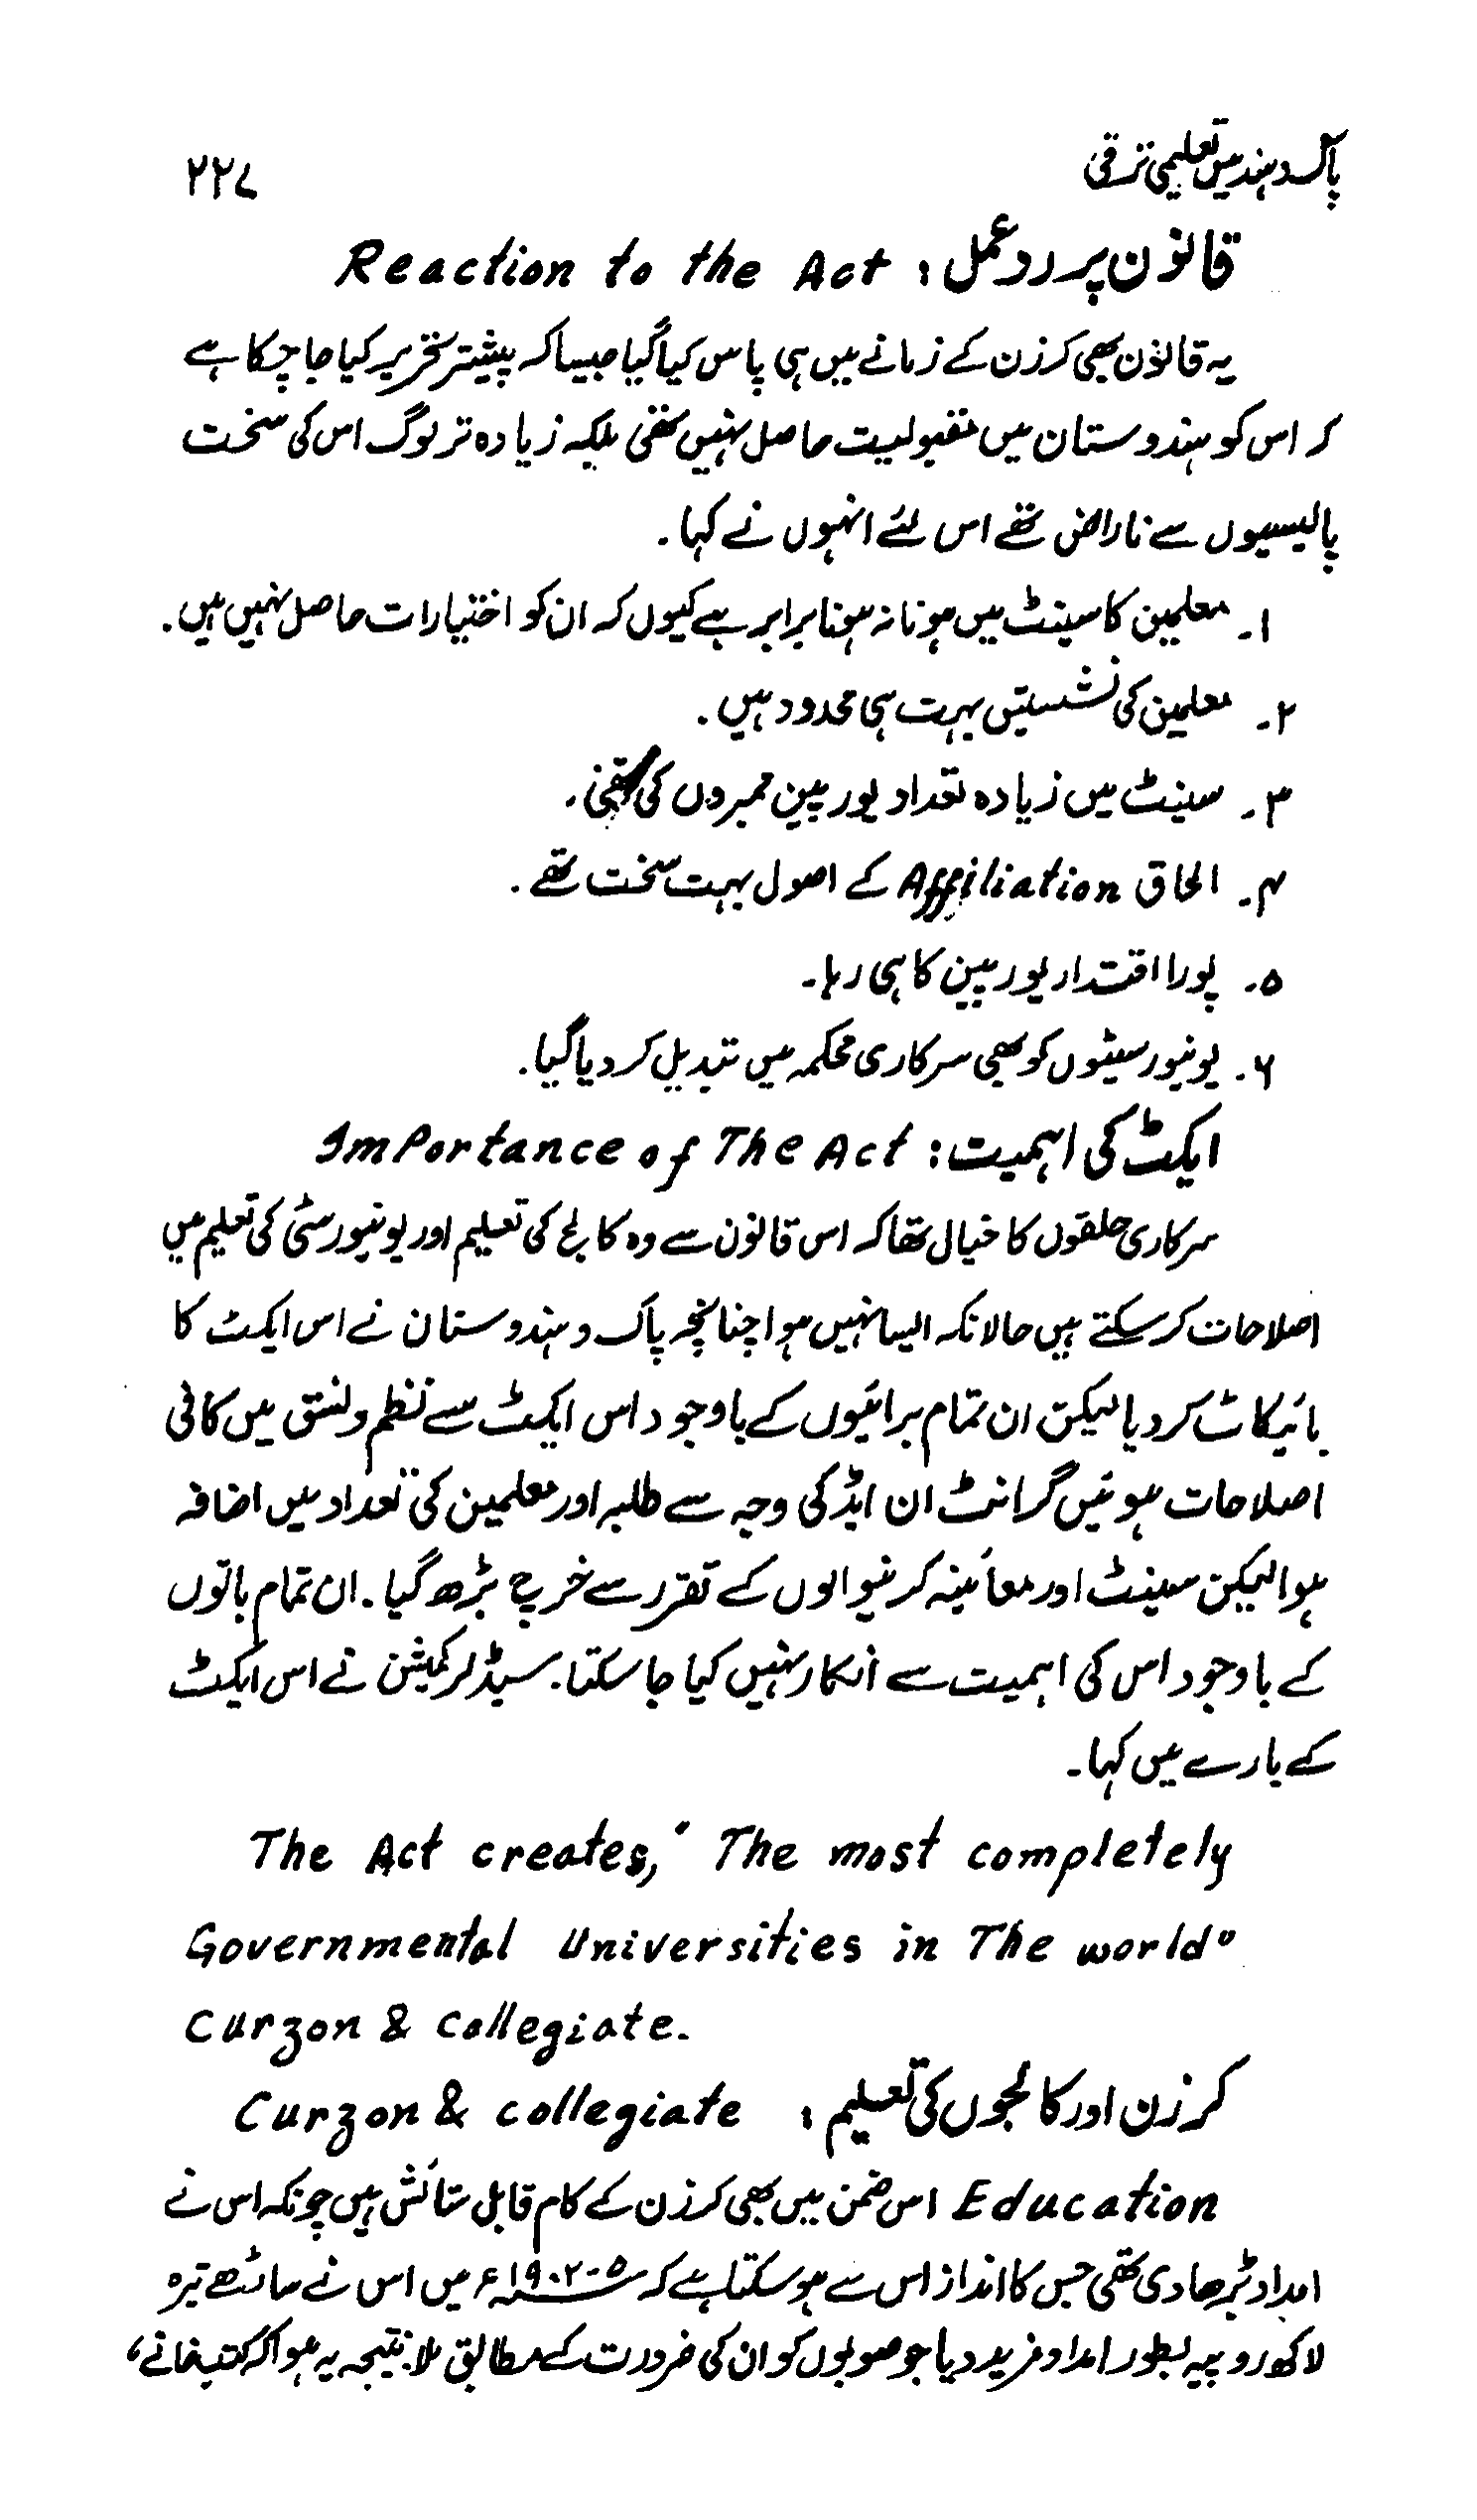 پاک و ہند میں تعلیمی ترقی ۲۲۷
قانون پر ردِ عمل : Reaction to the Act
یہ قانون بھی کرزن کے زمانے میں ہی پاس کیا گیا جیسا کہ پیشتر تحریر کیا جا چکا ہے
کہ اس کو ہندوستان میں مقبولیت حاصل نہیں تھی بلکہ زیادہ تر لوگ اس کی سخت
پالیسیوں سے ناراض تھے اس لئے انہوں نے کہا۔
۱۔ معلمین کا سینٹ میں ہونا نہ ہونا برابر ہے کیوں کہ ان کو اختیارات حاصل نہیں ہیں۔
۲۔ معلمین کی نشستیں بہت ہی محدود ہیں۔
۳۔ سینٹ میں زیادہ تعداد یورپین ممبروں کی تھی۔
۴۔ الحاق Affiliation کے اصول بہت سخت تھے۔
۵۔ پورا اقتدار یورپین کا ہی رہا۔
۶۔ یونیورسیٹوں کو بھی سرکاری محکمہ میں تبدیل کر دیا گیا۔
ایکٹ کی اہمیت : ImPortance of The Act
سرکاری حلقوں کا خیال تھا کہ اس قانون سے وہ کالج کی تعلیم اور یونیورسٹی کی تعلیم میں
اصلاحات کر سکتے ہیں حالانکہ ایسا نہیں ہوا چنانچہ پاک و ہندوستان نے اس ایکٹ کا
بائیکاٹ کر دیا لیکن ان تمام برائیوں کے باوجود اس ایکٹ سے نظم و نسق میں کافی
اصلاحات ہوئیں گرانٹ ان ایڈ کی وجہ سے طلبہ اور معلمین کی تعداد میں اضافہ
ہوا لیکن سینٹ اور معائینہ کرنیوالوں کے تقرر سے خرچ بڑھ گیا۔ ان تمام باتوں
کے باوجود اس کی اہمیت سے انکار نہیں کیا جا سکتا۔ سیڈلر کمیشن نے اس ایکٹ
کے بارے میں کہا۔
The Act creates," The most completely
Governmental Universities in The world"
Curzon & Collegiate.
کرزن اور کالجوں کی تعلیم : Curzon & collegiate
Education اس ضمن میں بھی کرزن کے کام قابل ستائش ہیں چونکہ اس نے
امداد بڑھا دی تھی جس کا انداز اس سے ہو سکتا ہے کہ ۵-۱۹۰۲ء میں اس نے ساڑھے تیرہ
لاکھ روپیہ بطور امداد مزید دیا جو صوبوں کو ان کی ضرورت کے مطابق ملا۔ نتیجہ یہ ہوا کہ کتب خانے،